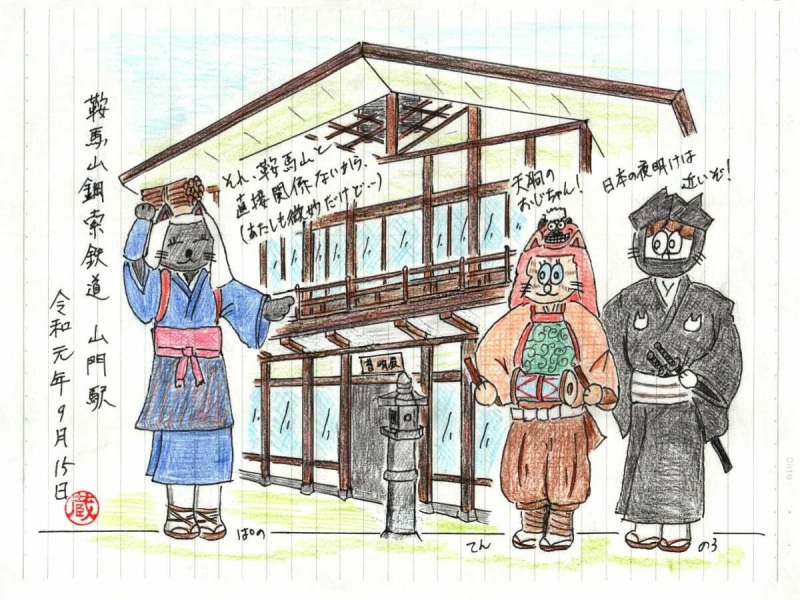 鞍馬山鋼索鉄道 山門駅
令和元年9月15日
蔵
それ、鞍馬山と
直接関係ないから、
(あたしも微妙だけど…)
天狗の
おじちゃん!
日本の夜明けは
近いぞ!
普明殿
ぱの
てん
のろ
Date